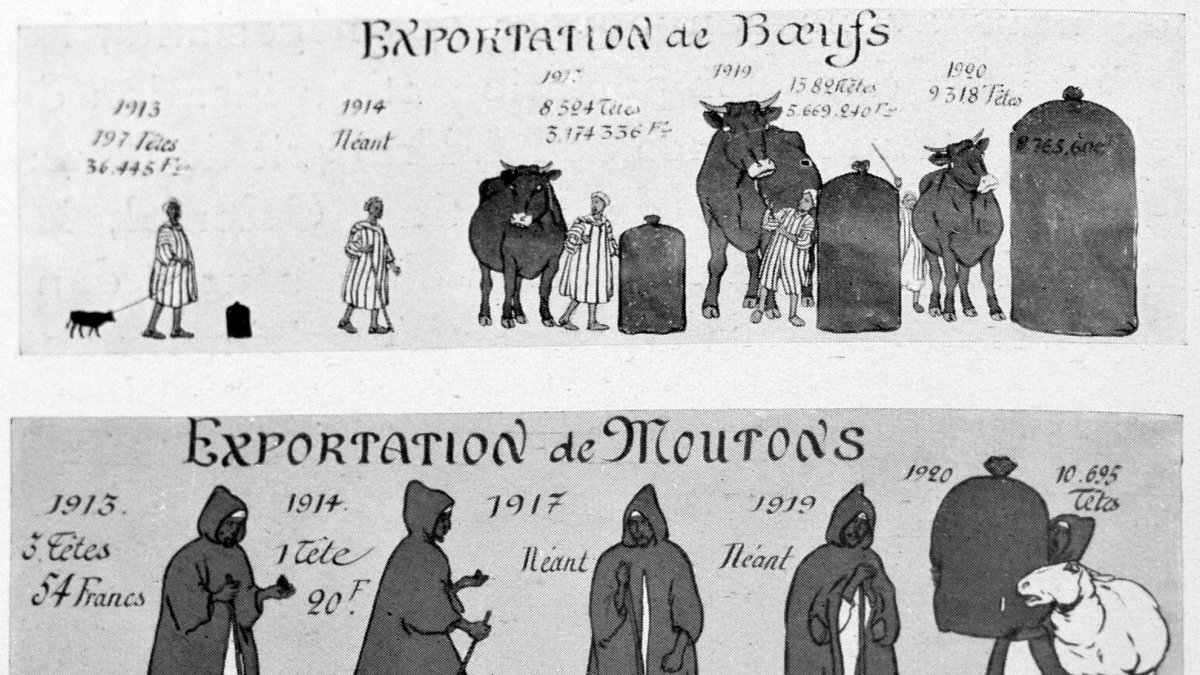 EXPORTATION de BŒUFS
1913
197 Têtes
36.445 Fr
1914
Néant
1917
8524 Têtes
3.174 336 Fr
1919
Têtes
5.669.240 Fr
1920
9318 Têtes
EXPORTATION de MOUTONS
1913.
3. Têtes
54 Francs
1914.
1 Tête
20 F.
1917
Néant
1919
Néant
1920
10.695
Têtes